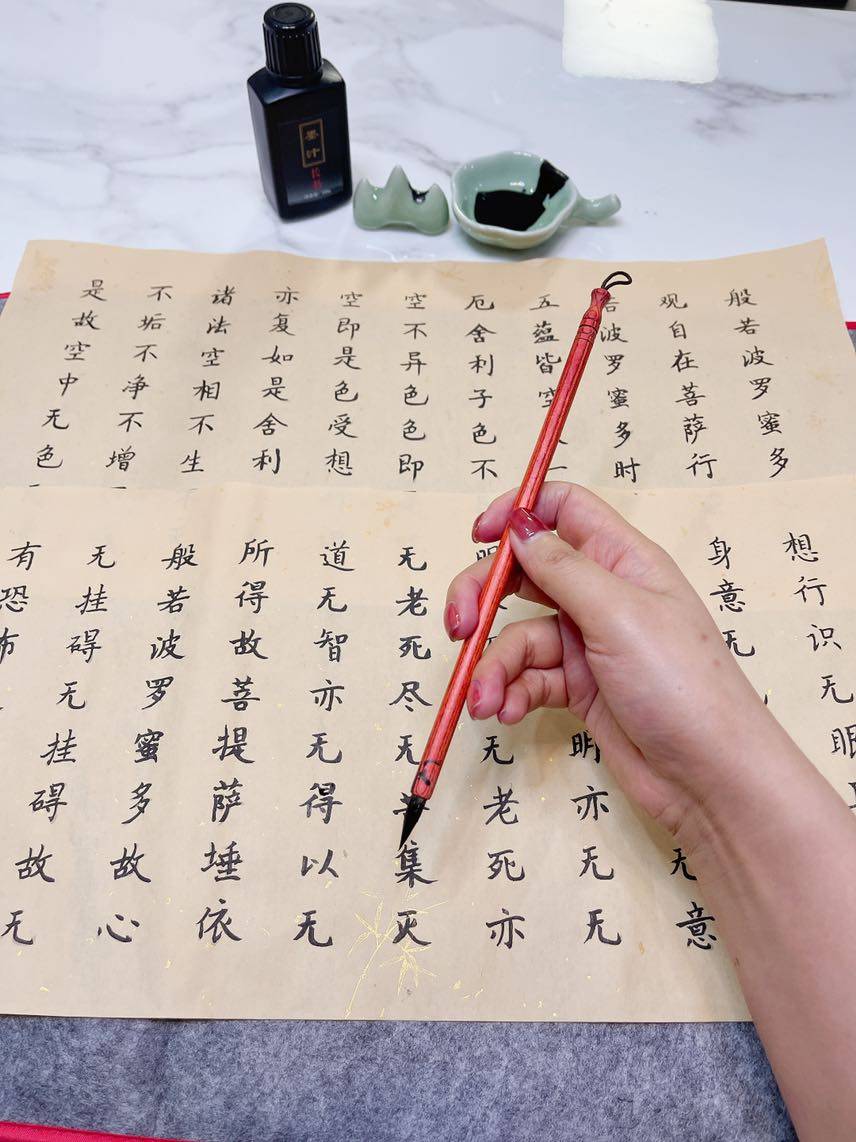 墨汁
般若波罗蜜多
观自在菩萨行
若波罗蜜多时
五蕴皆空
厄舍利子色不
空不异色色即
空即是色受想
亦复如是舍利
诸法空相不生
不垢不净不增
是故空中无色
想行识无眼
身意无
无意
明亦无无
无老死亦
无老死尽无集灭
道无智亦无得以无
所得故菩提萨埵依
般若波罗蜜多故心
无挂碍无挂碍故无
有恐怖